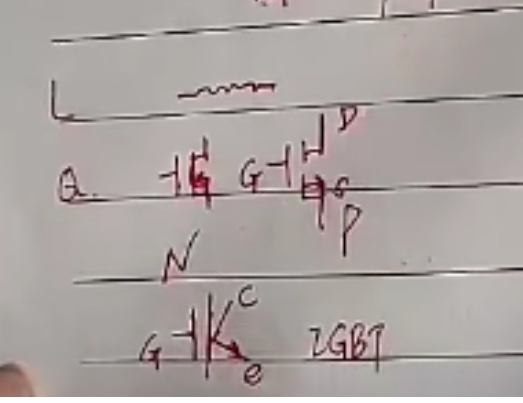 L
Q. G D
S
N P
G C
e IGBT